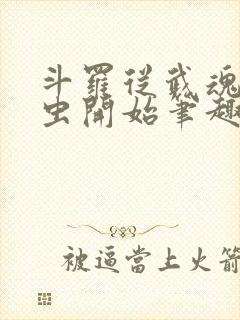 斗羅從武魂
虫開始筆趣
被逼當上火箭